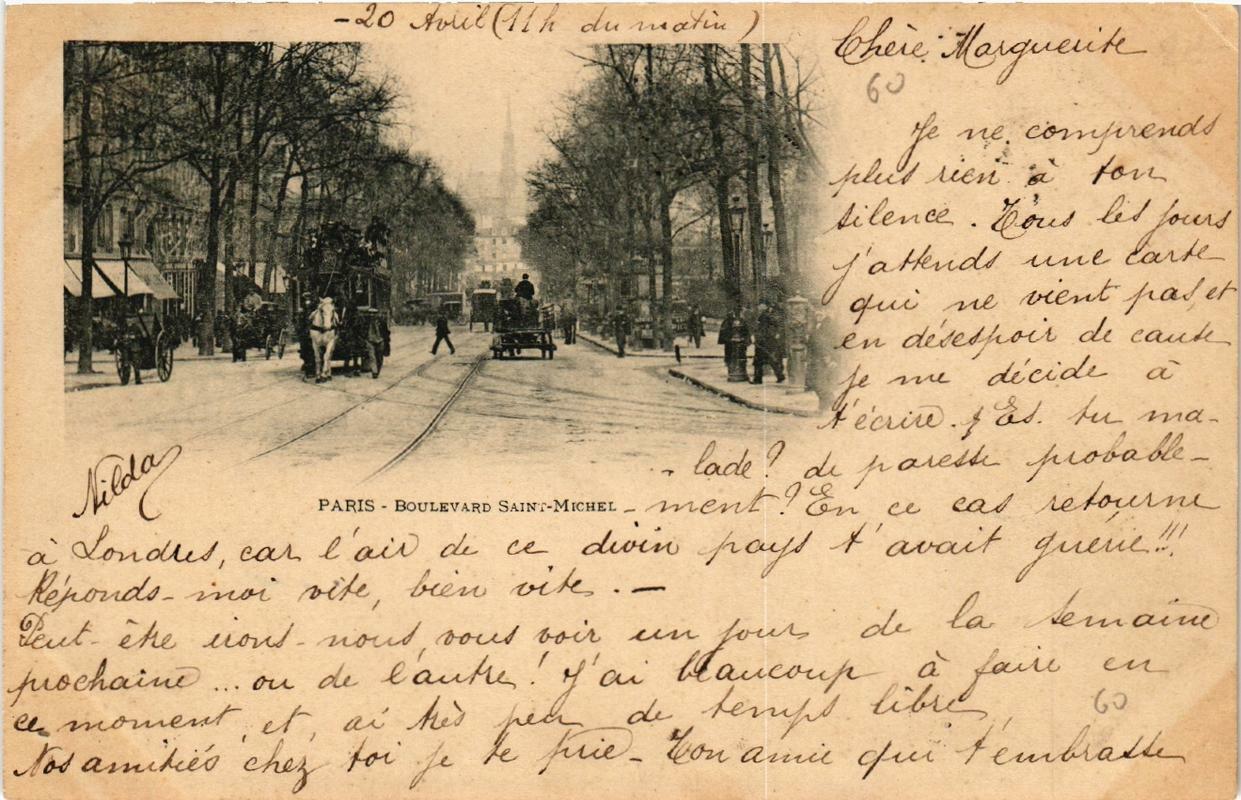 -20 Avril (11h du matin)
Chère Marguerite
60
Je ne comprends
plus rien à ton
silence. Tous les jours
j'attends une carte
qui ne vient pas, et
en désespoir de cause
je me décide à
t'écrire. Es-tu ma-
-lade? de paresse probable-
PARIS - BOULEVARD SAINT-MICHEL
-ment? En ce cas retourne
à Londres, car l'air de ce divin pays t'avait guérie!!!
Réponds-moi vite, bien vite. —
Peut-être irons-nous vous voir un jour de la semaine
prochaine ... ou de l'autre! J'ai beaucoup à faire en
ce moment, et, ai très peu de temps libre,
60
Nos amitiés chez toi je te prie - Ton amie qui t'embrasse
Nilda